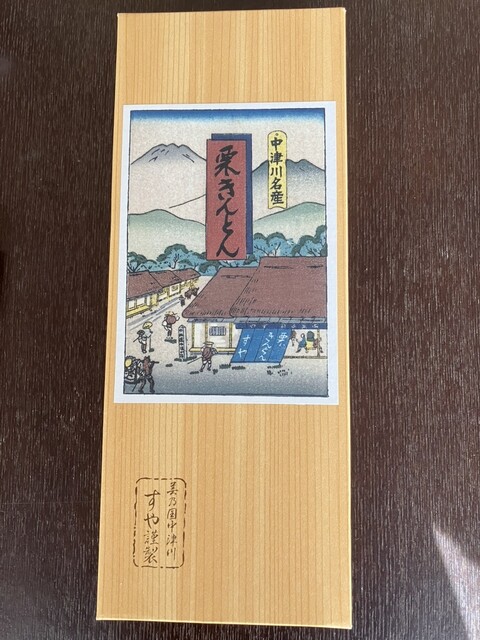 中津川名産
栗きんとん
栗
きんとん
すや
美乃国中津川
すや謹製